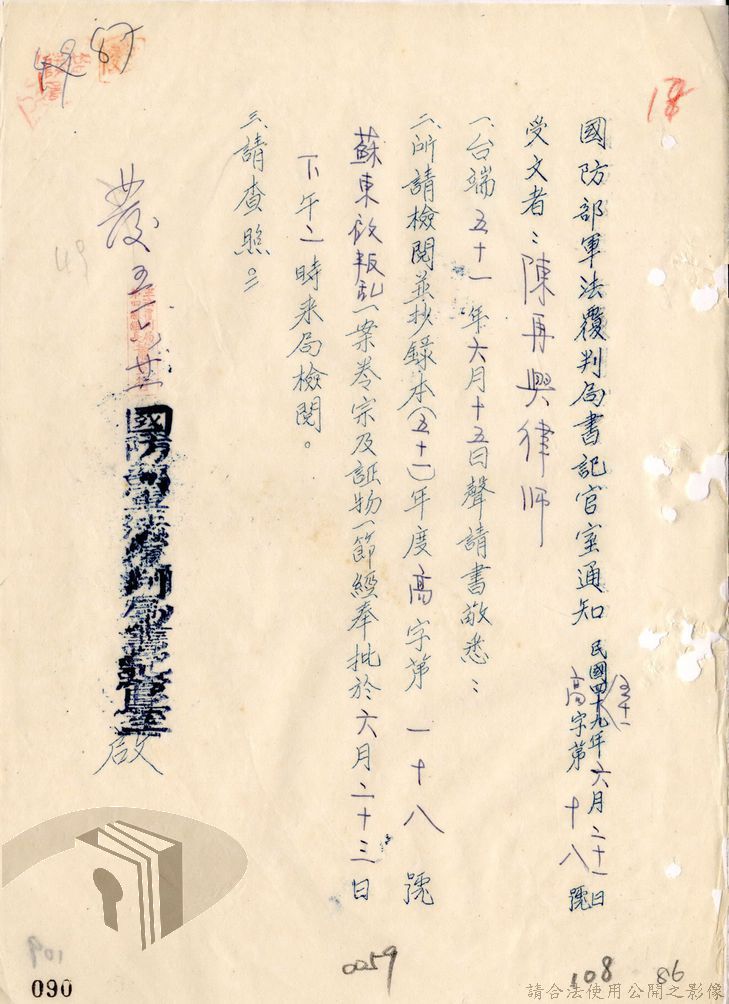 18
國防部軍法覆判局書記官室通知
民國四十九年六月二十一日
五十一
高字第十八號
受文者:陳再興律师
一、台端五十一年六月十五日聲請書敬悉:
二、所請檢閱並抄錄本(五十一)年度高字第一十八號
蘇東啟叛乱一案卷宗及証物一節經奉批於六月二十三日
下午二時来局檢閱。
三、請查照。
國防部軍法覆判局書記官室
啟
87
49
109
090
0059
108
86
請合法使用公開之影像